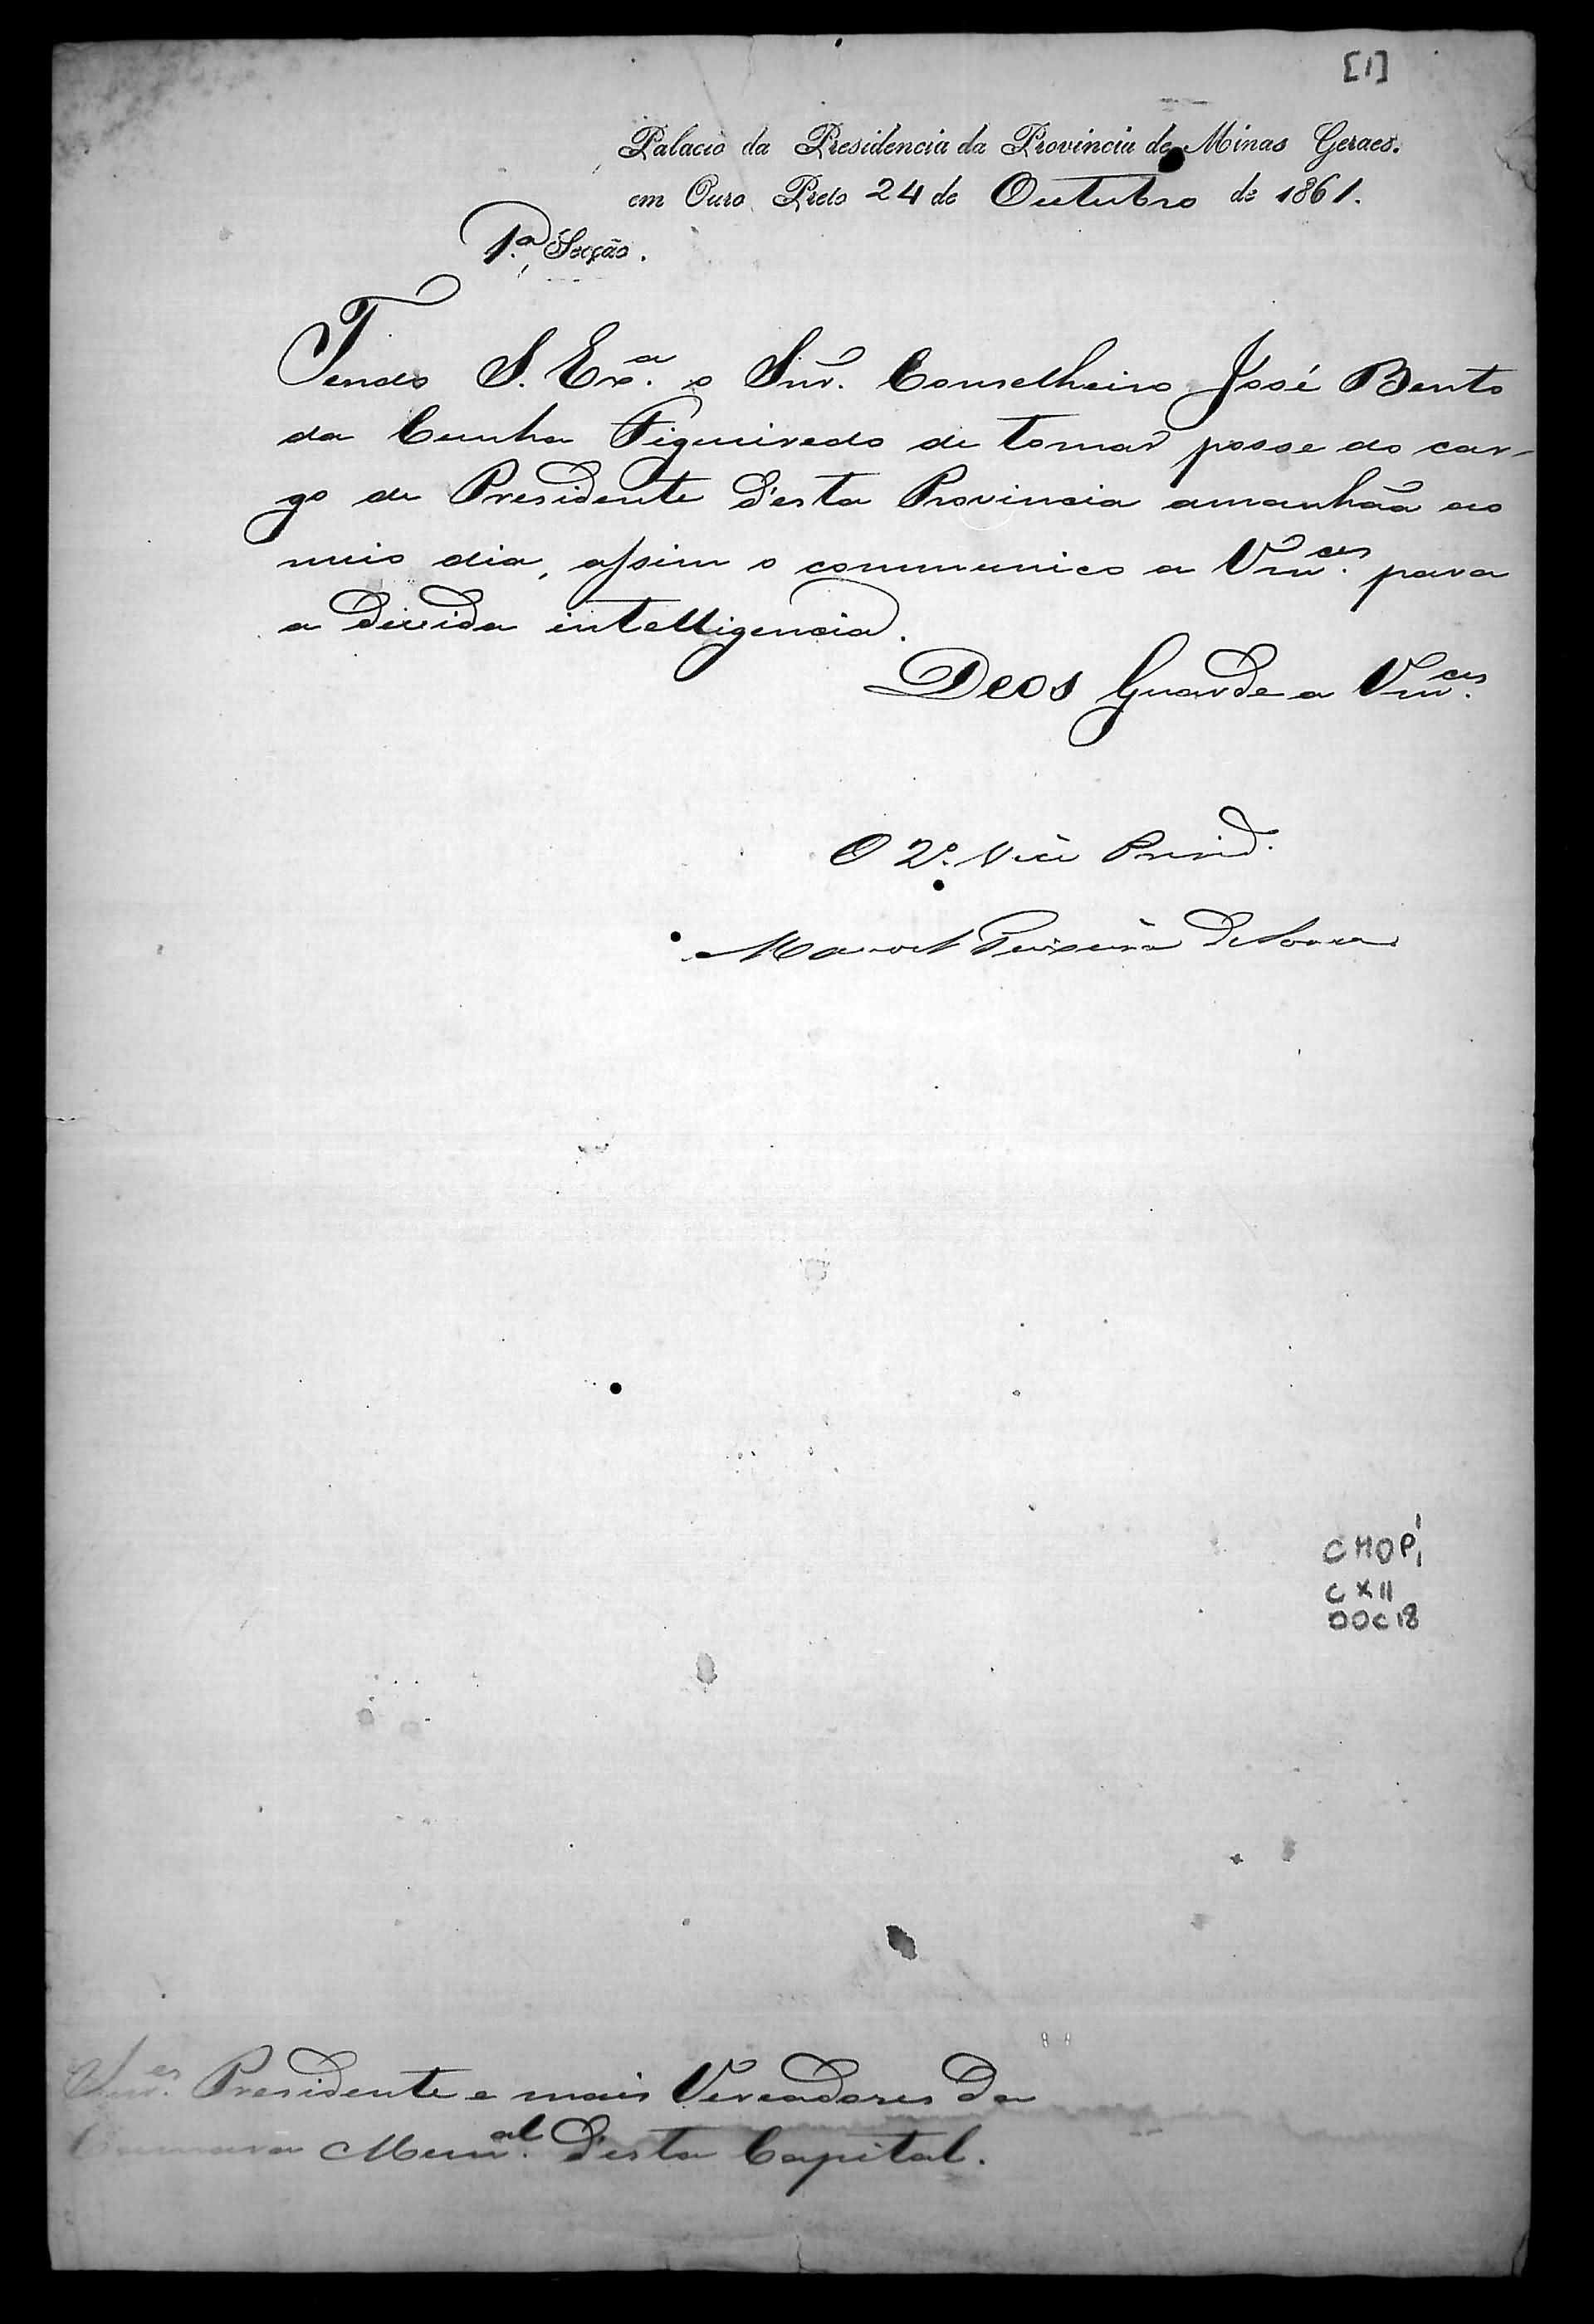 [1]
Palacio da Presidencia da Provincia de Minas Geraes.
em Ouro Preto 24 de Outubro de 1861.
1.ª Secção.
Tendo S. Ex.ª o Snr. Conselheiro José Bento
da Cunha Figueiredo de tomar posse do car-
go de Presidente d'esta Provincia amanhãa ao
meio dia, assim o communico a Vm.ces para
a devida intelligencia.
Deos Guarde a Vm.ces
O 2.º Vice Presid.
Manoel Teixeira de Souza
CMOP
C XII
DOC 18
Snr.es Presidente e mais Vereadores da
Camara Mun.al d'esta Capital.